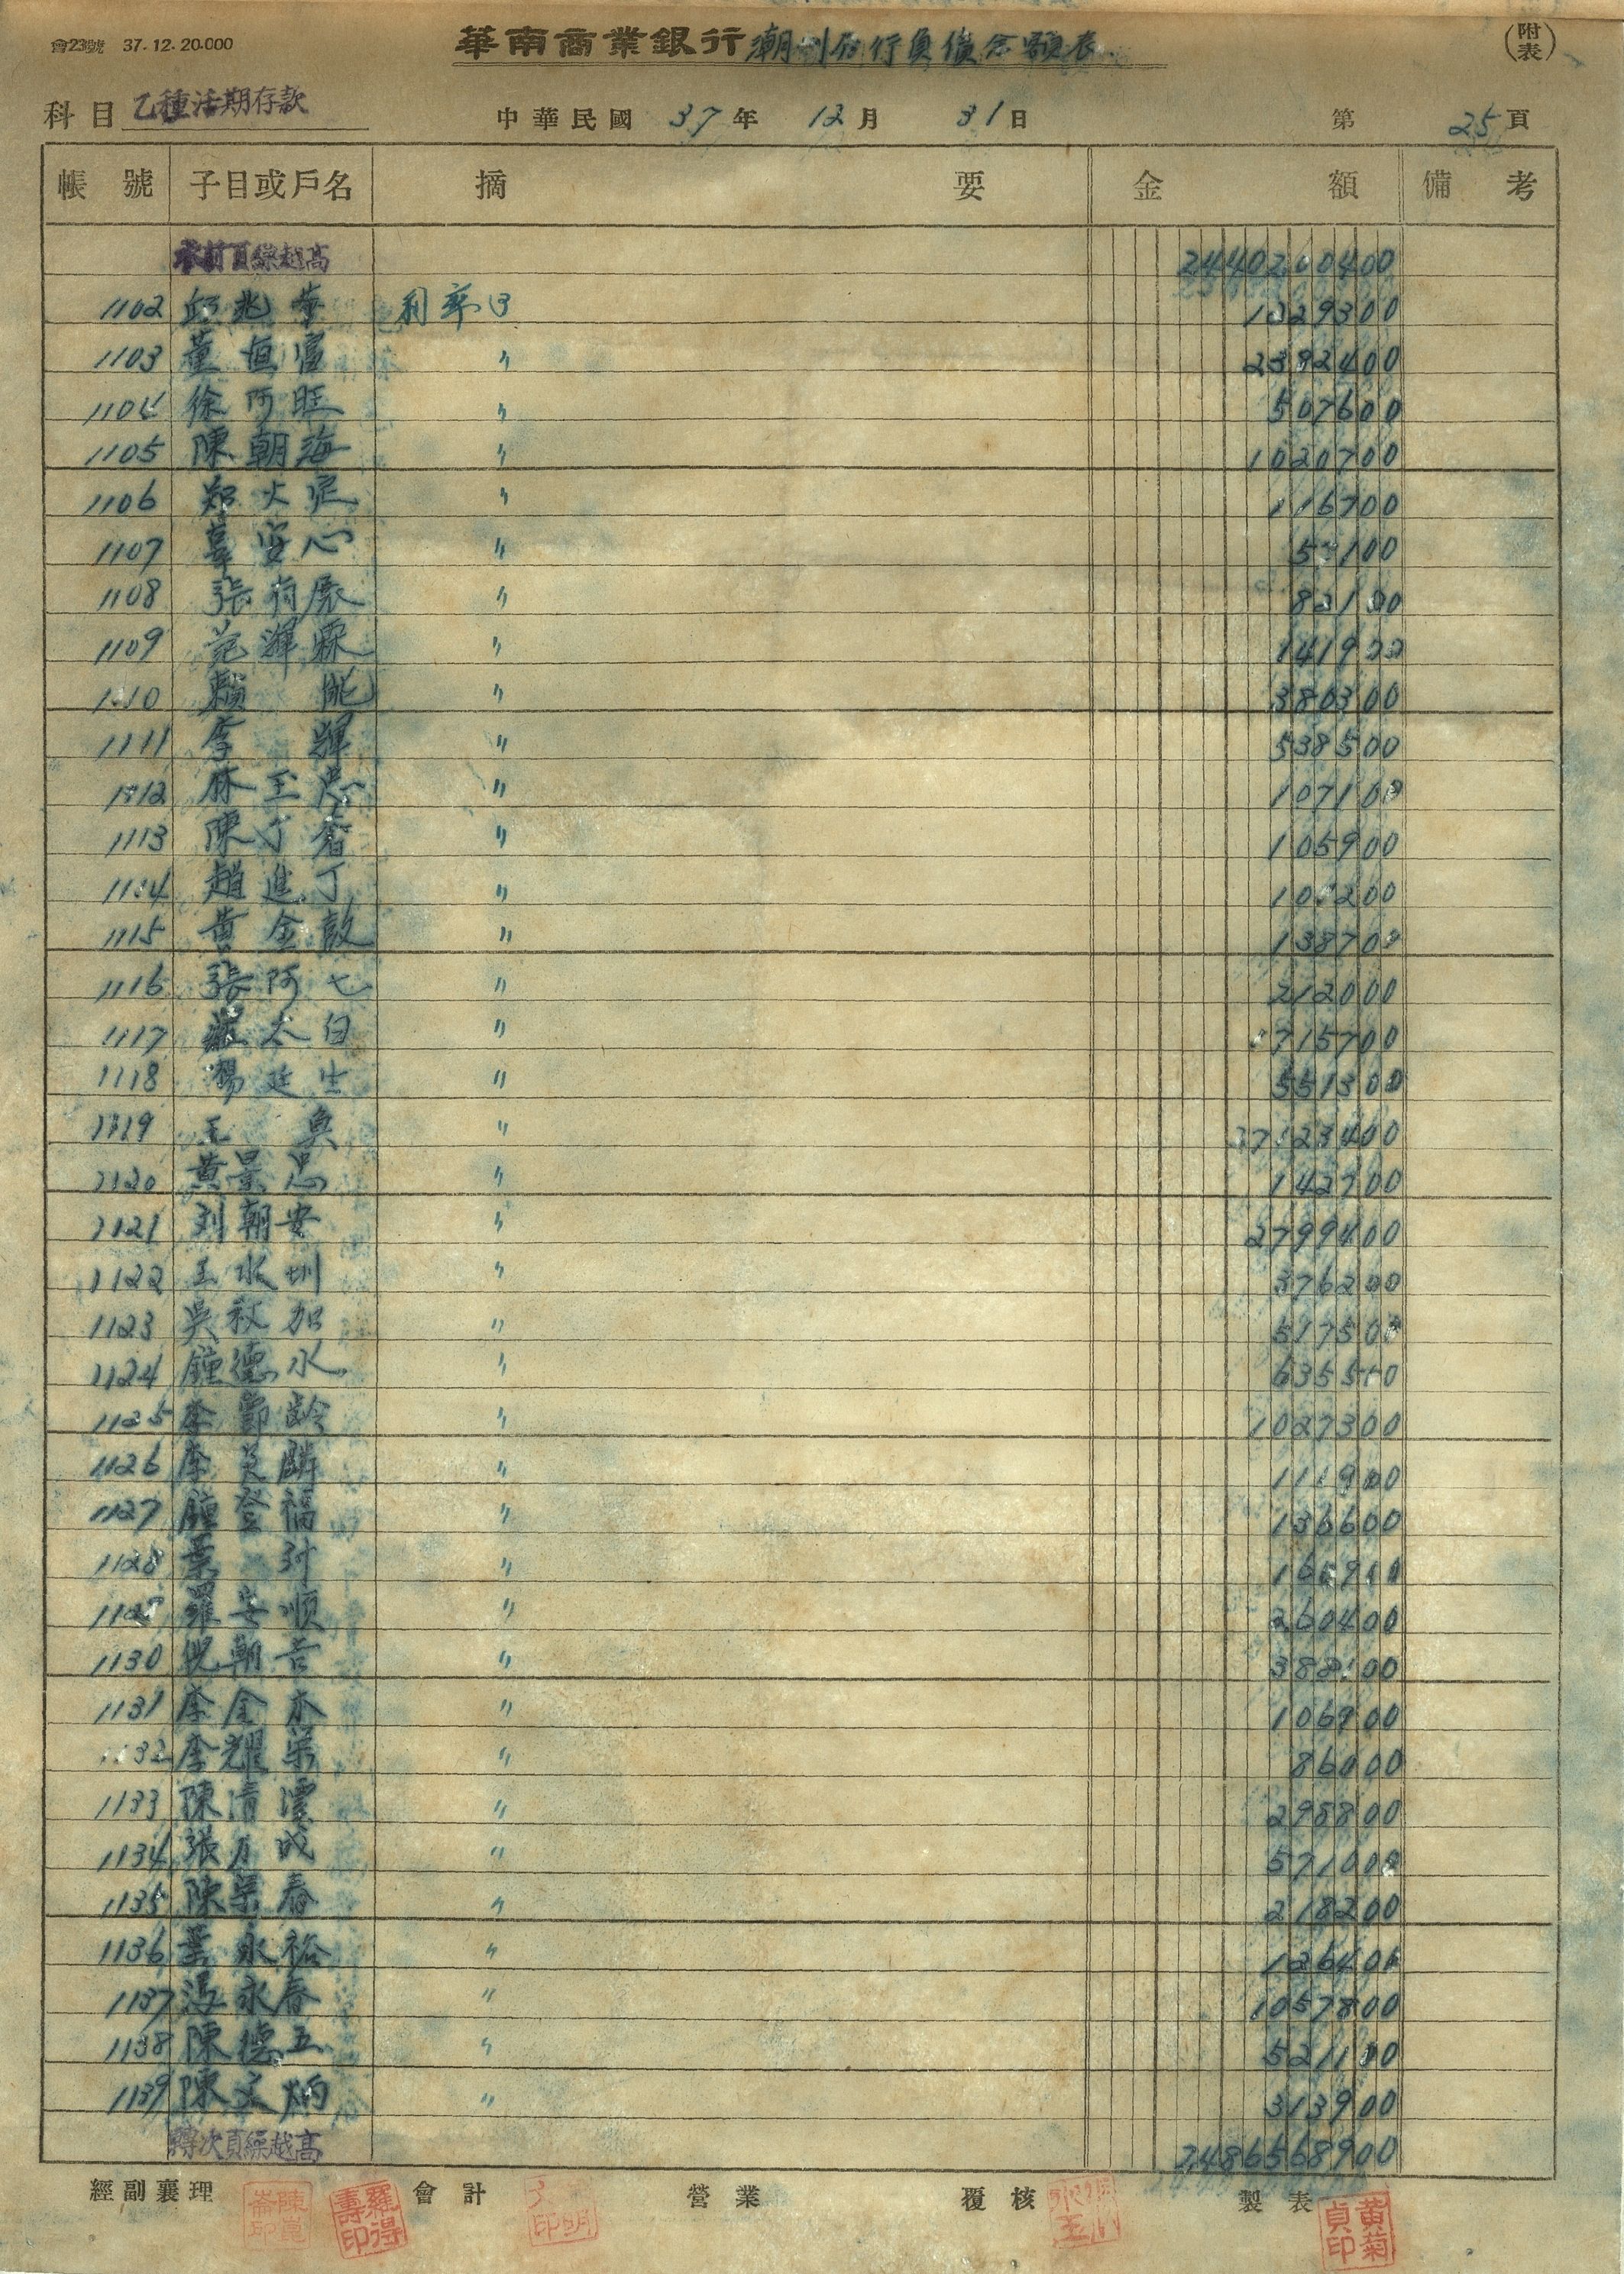 會23號 37.12.20.000
華南商業銀行潮州分行負債念額表
(附表)
科目 乙種活期存款 中華民國 37年 12月 31日 第 25頁
帳號 子目或戶名 摘要 金額 備考
承前頁繰越高
1102 邱兆華 利率 1329300
1103 董恒富 〃 2392400
1104 徐阿旺 〃 507600
1105 陳朝海 〃 1020700
1106 郑火定 〃 116700
1107 辜安心 〃
1108 張 〃
1109 范輝霖 〃 1419
1110 賴 〃 380300
1111 李輝 〃 538500
1112 林玉忠 〃 107100
1113 陳丁春 〃 105900
1114 趙進丁 〃
1115 黄金鼓 〃 138700
1116 張阿七 〃 212000
1117 太白 〃 715700
1118 楊廷生 〃 551300
1119 王魚 〃
1120 黄景忠 〃 142700
1121 刘朝安 〃 2799400
1122 王水圳 〃 376200
1123 吳秋加 〃 577500
1124 鍾德水 〃 635500
1125 李鄧齡 〃 1027300
1126 李英麟 〃 111900
1127 鍾登福 〃 136600
1128 葉 〃
1129 羅安順 〃 260400
1130 倪朝吉 〃 388100
1131 李金木 〃 106900
1132 李耀荣 〃 86000
1133 陳清澐 〃 298800
1134 張万成 〃 571000
1135 陳荣春 〃 218200
1136 葉永裕 〃 136400
1137 馮永春 〃 1057800
1138 陳德五 〃 521100
1139 陳文炳 〃 313900
轉次頁繰越高 2486568900
經副襄理 羅得壽印 會計 營業 覆核 製表 黄菊貞印